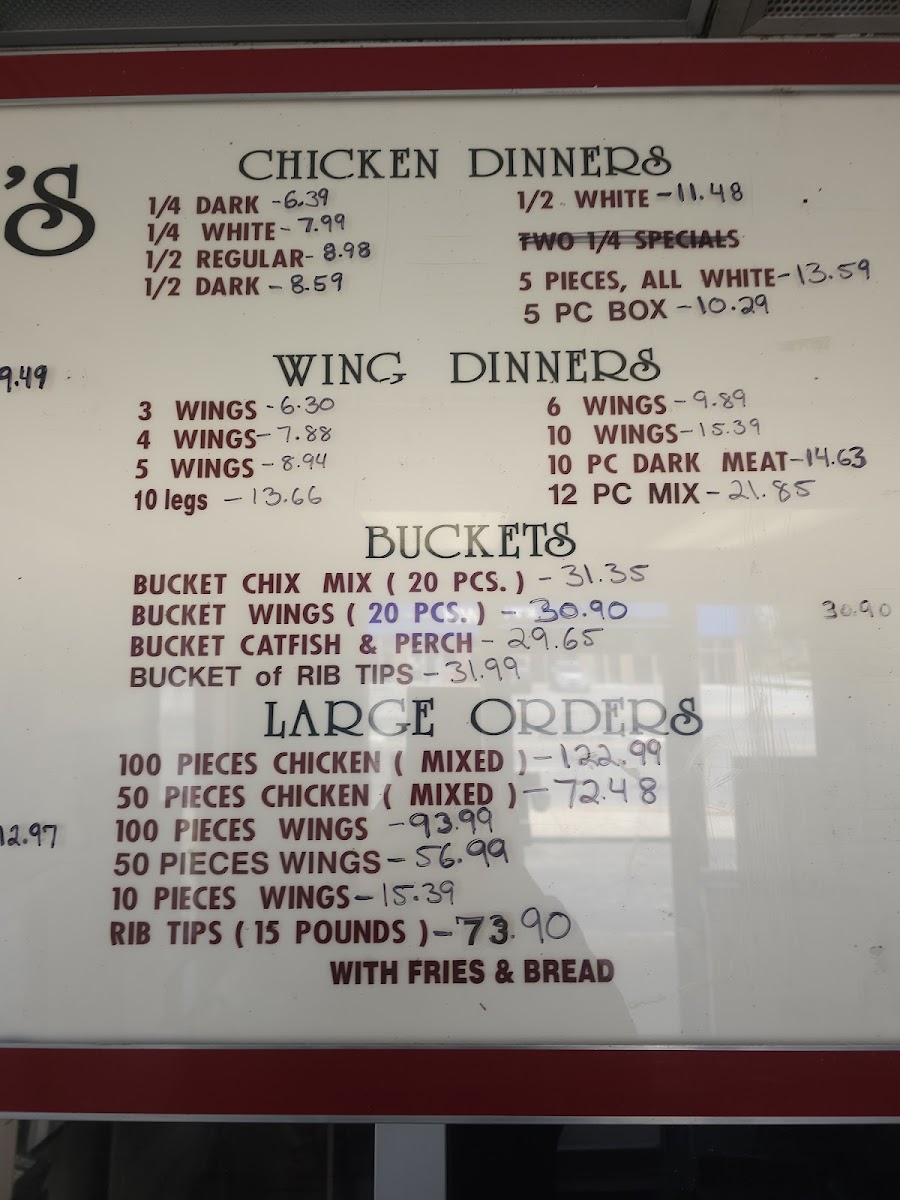 'S
CHICKEN DINNERS
1/4 DARK - 6.39
1/4 WHITE - 7.99
1/2 REGULAR - 8.98
1/2 DARK - 8.59
1/2 WHITE - 11.48
TWO 1/4 SPECIALS
5 PIECES, ALL WHITE - 13.59
5 PC BOX - 10.29
9.49
WING DINNERS
3 WINGS - 6.30
4 WINGS - 7.88
5 WINGS - 8.94
10 legs - 13.66
6 WINGS - 9.89
10 WINGS - 15.39
10 PC DARK MEAT - 14.63
12 PC MIX - 21.85
BUCKETS
BUCKET CHIX MIX ( 20 PCS. ) - 31.35
BUCKET WINGS ( 20 PCS. ) - 30.90
30.90
BUCKET CATFISH & PERCH - 29.65
BUCKET of RIB TIPS - 31.99
LARGE ORDERS
100 PIECES CHICKEN ( MIXED ) - 122.99
50 PIECES CHICKEN ( MIXED ) - 72.48
100 PIECES WINGS - 93.99
12.97
50 PIECES WINGS - 56.99
10 PIECES WINGS - 15.39
RIB TIPS ( 15 POUNDS ) - 73.90
WITH FRIES & BREAD